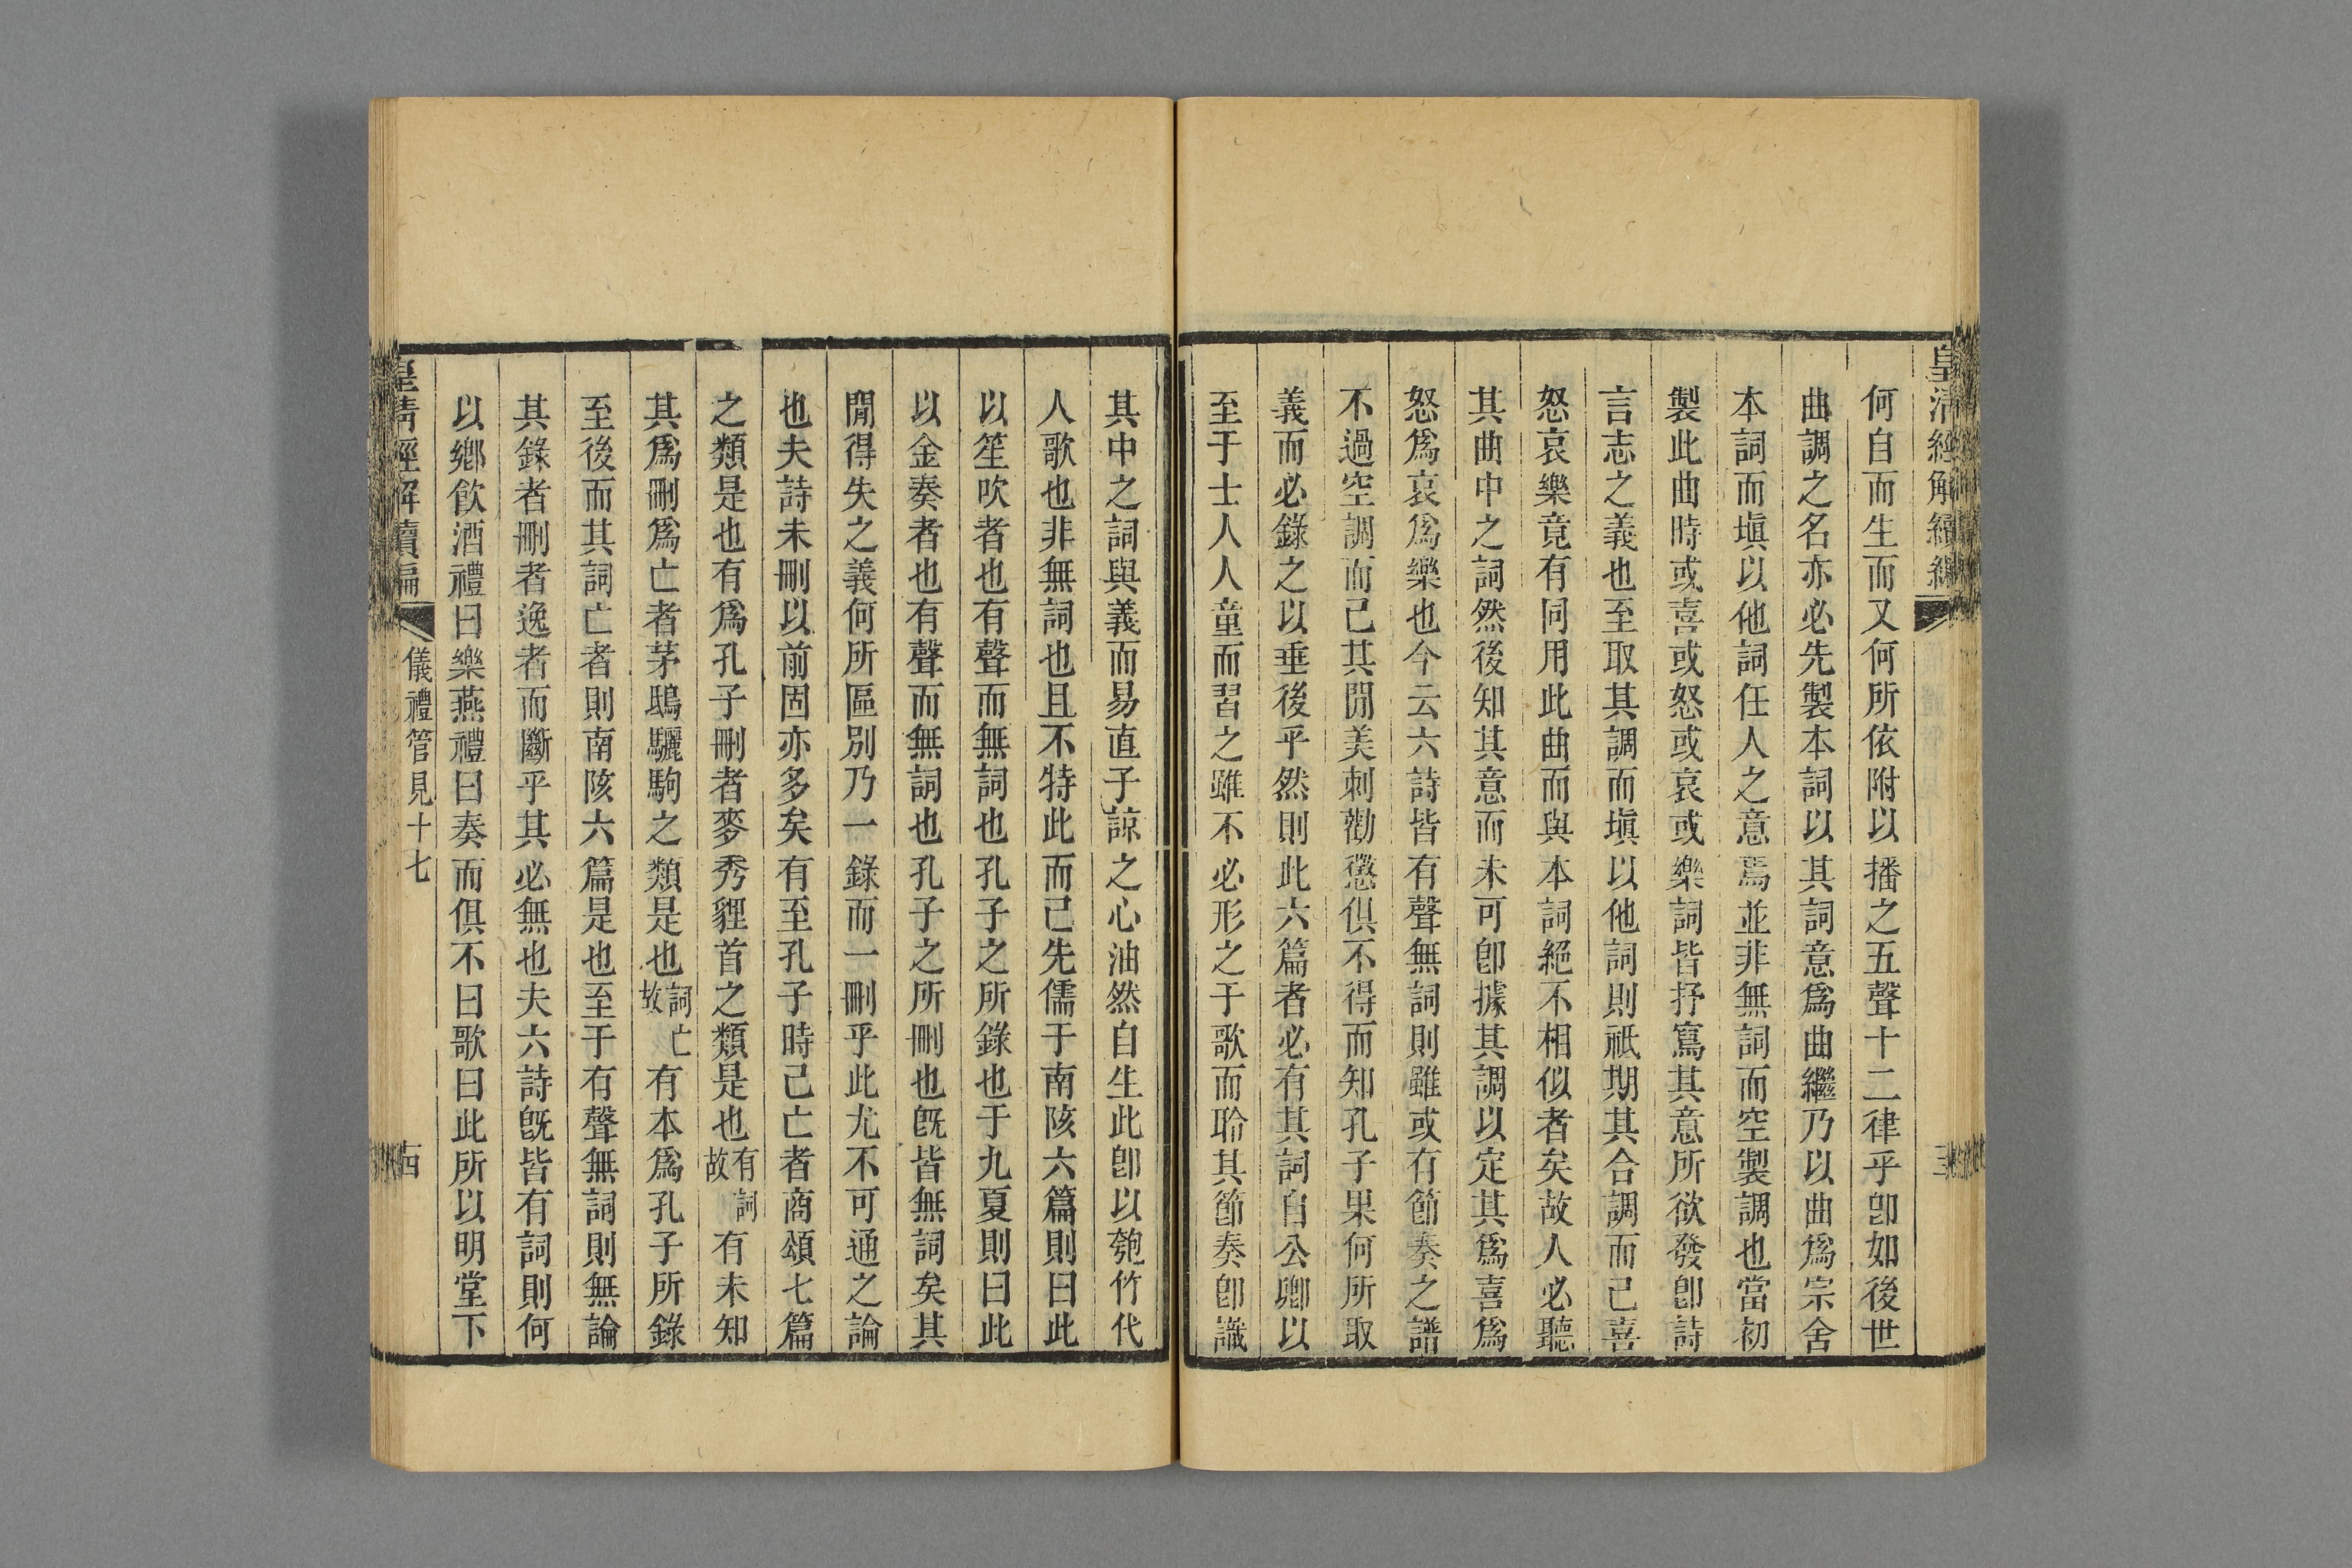 皇清經解續編
何自而生而又何所依附以播之五聲十二律乎卽如後世
曲調之名亦必先製本詞以其詞意爲曲繼乃以曲爲宗舍
本詞而塡以他詞任人之意焉並非無詞而空製調也當初
製此曲時或喜或怒或哀或樂詞皆抒寫其意所欲發卽詩
言志之義也至取其調而塡以他詞則祇期其合調而已喜
怒哀樂竟有同用此曲而與本詞絕不相似者矣故人必聽
其曲中之詞然後知其意而未可卽據其調以定其爲喜爲
怒爲哀爲樂也今云六詩皆有聲無詞則雖或有節奏之譜
不過空調而已其閒美刺勸懲俱不得而知孔子果何所取
義而必錄之以垂後乎然則此六篇者必有其詞自公卿以
至于士人人童而習之雖不必形之于歌而聆其節奏卽識
其中之詞與義而易直子諒之心油然自生此卽以匏竹代
人歌也非無詞也且不特此而已先儒于南陔六篇則曰此
以笙吹者也有聲而無詞也孔子之所錄也于九夏則曰此
以金奏者也有聲而無詞也孔子之所刪也旣皆無詞矣其
閒得失之義何所區別乃一錄而一刪乎此尤不可通之論
也夫詩未刪以前固亦多矣有至孔子時已亡者商頌七篇
之類是也有爲孔子刪者麥秀貍首之類是也有詞故有未知
其爲刪爲亡者茅鴟驪駒之類是也詞亡故有本爲孔子所錄
至後而其詞亡者則南陔六篇是也至于有聲無詞則無論
其錄者刪者逸者而斷乎其必無也夫六詩旣皆有詞則何
以鄉飮酒禮曰樂燕禮曰奏而俱不曰歌曰此所以明堂下
皇清經解續編 儀禮管見十七 十四